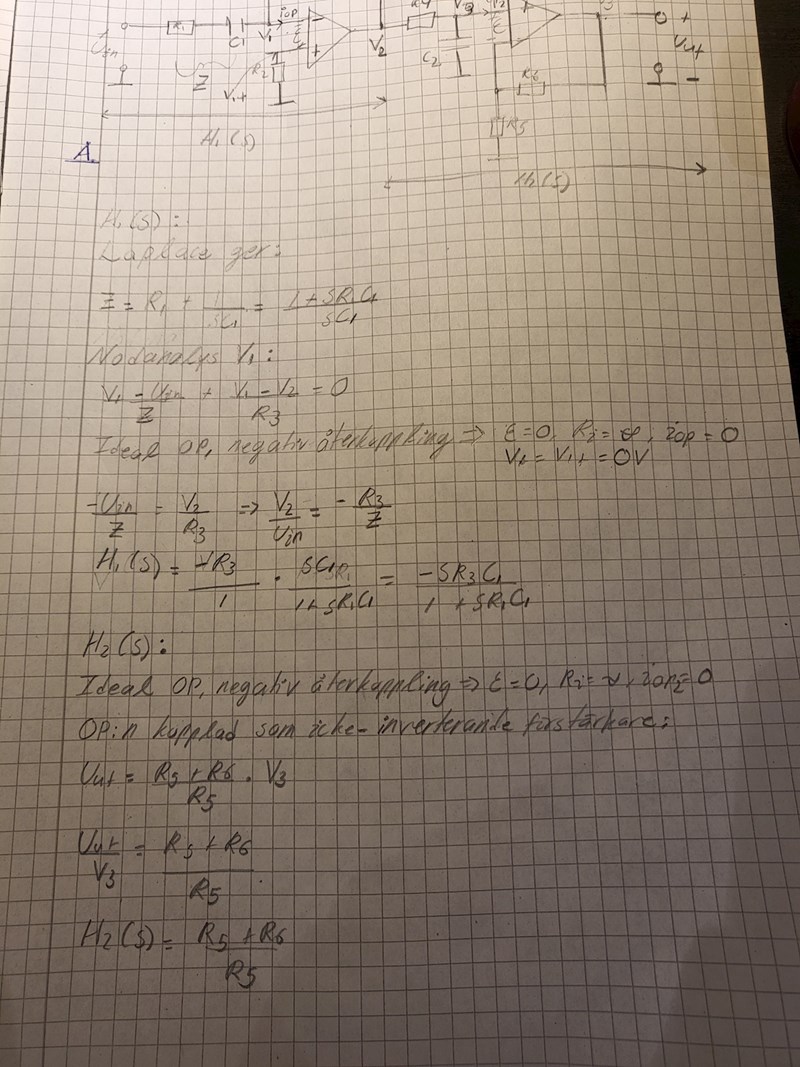 R1 C1 V1 iop V2 R4 V3 +
Uin Z V1+ R2 C2 R6 Uut
H1(s) R5 -
A. H2(s)
H1(s):
Laplace ger:
Z = R1 + 1/sC1 = (1+sR1C1)/sC1
Nodanalys V1:
(V1 - Uin)/Z + (V1 - V2)/R3 = 0
Ideal OP, negativ återkoppling => ε=0, Ri=∞, iop = 0
V1 = V1+ = 0V
-Uin/Z = V2/R3 => V2/Uin = -R3/Z
H1(s) = -R3/1 · sC1/(1+sR1C1) = -sR3C1/(1+sR1C1)
H2(s):
Ideal OP, negativ återkoppling => ε=0, Ri=∞, iop2=0
OP:n kopplad som icke-inverterande förstärkare:
Uut = (R5+R6)/R5 · V3
Uut/V3 = (R5+R6)/R5
H2(s) = (R5+R6)/R5